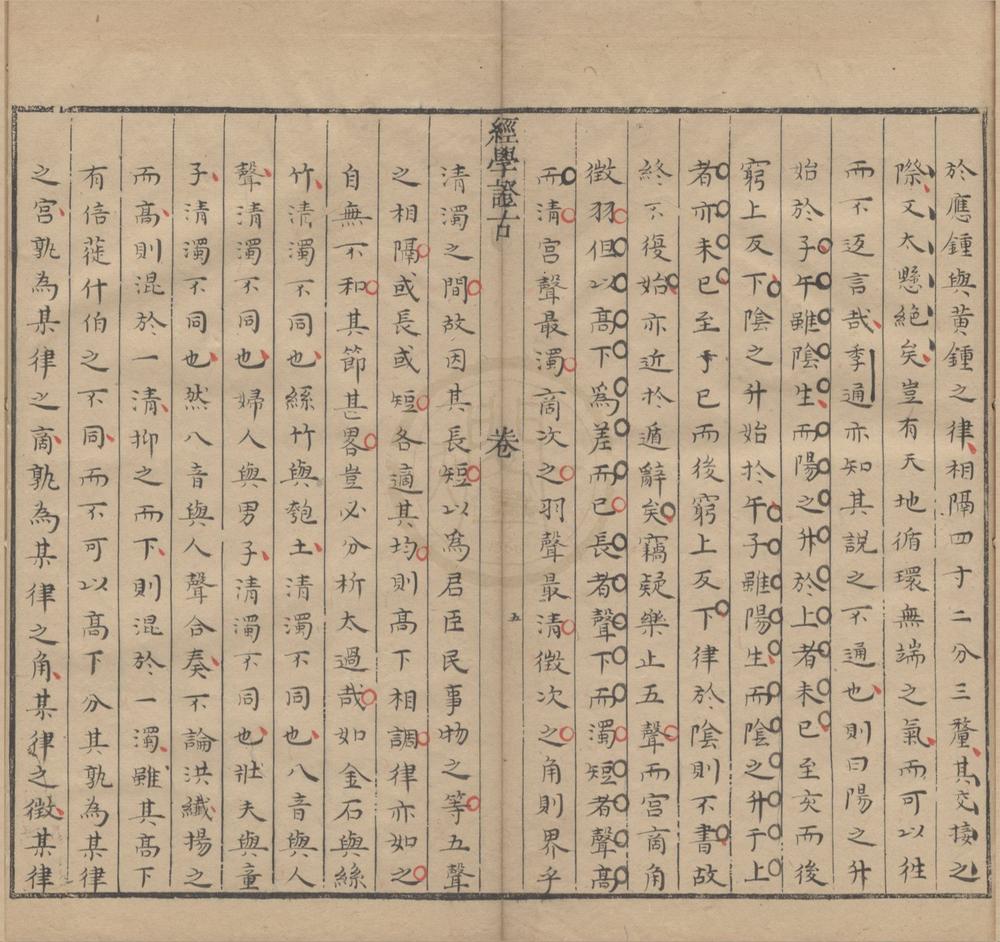 於應鍾與黃鍾之律相隔四寸二分三釐其交接之
際又太懸絕矣豈有天地循環無端之氣而可以徃
而不返言哉季通亦知其說之不通也則曰陽之升
始於子午雖陰生而陽之升於上者未已至亥而後
窮上反下陰之升始於午子雖陽生而陰之升于上
者亦未已至于巳而後窮上反下律於陰則不書故
終不復始亦近於遁辭矣竊疑樂止五聲而宮商角
徵羽但以高下爲差而已長者聲下而濁短者聲高
而清宮聲最濁商次之羽聲最清徵次之角則界乎
經學證古
卷
五
清濁之間故因其長短以為君臣民事物之等五聲
之相隔或長或短各適其均則高下相調律亦如之
自無不和其節甚畧豈必分析太過哉如金石與絲
竹清濁不同也絲竹與匏土清濁不同也八音與人
聲清濁不同也婦人與男子清濁不同也壯夫與童
子清濁不同也然八音與人聲合奏不論洪纖揚之
而高則混於一清抑之而下則混於一濁雖其高下
有倍蓰什伯之不同而不可以高下分其孰為某律
之宮孰為某律之商孰為某律之角某律之徵某律